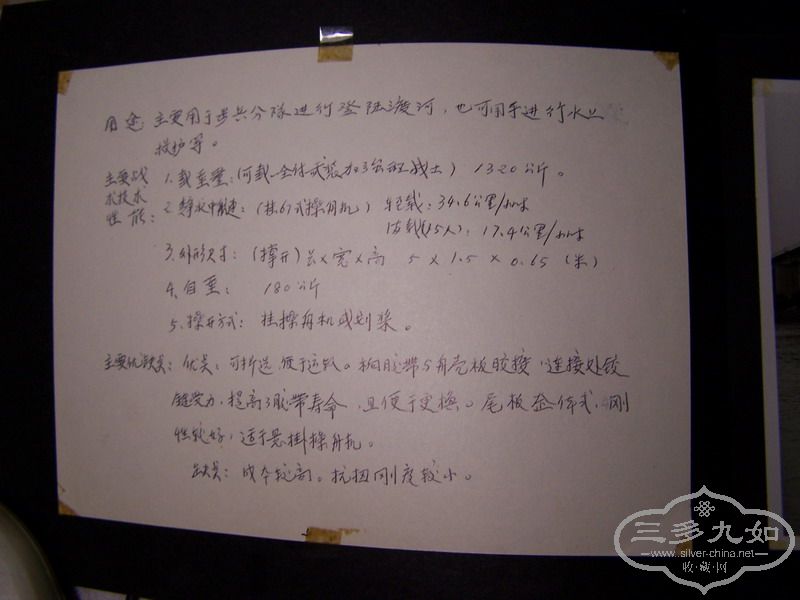 用途 主要用于步兵分队进行登陆渡河,也可用于进行水上
救护等。
主要战术技术性能:
1. 载重量:(可载一全付武装加3公斤战士) 1320公斤。
2. 静水中航速:(挂67式操舟机) 轻载:34.6公里/小时
满载(15人):17.4公里/小时
3. 外形尺寸:(撑开)长×宽×高 5×1.5×0.65(米)
4. 自重: 180公斤
5. 操舟方式: 挂操舟机或划桨。
主要优缺点:优点:可折迭,便于运输。 胶带与舟壳板胶接,连接处铰
链受力,提高了胶带寿命,且便于更换。尾板整体式,刚
性较好,适于悬挂操舟机。
缺点:成本较高。抗扭刚度较小。
三多九如
www.silver-china.net
收·藏·网